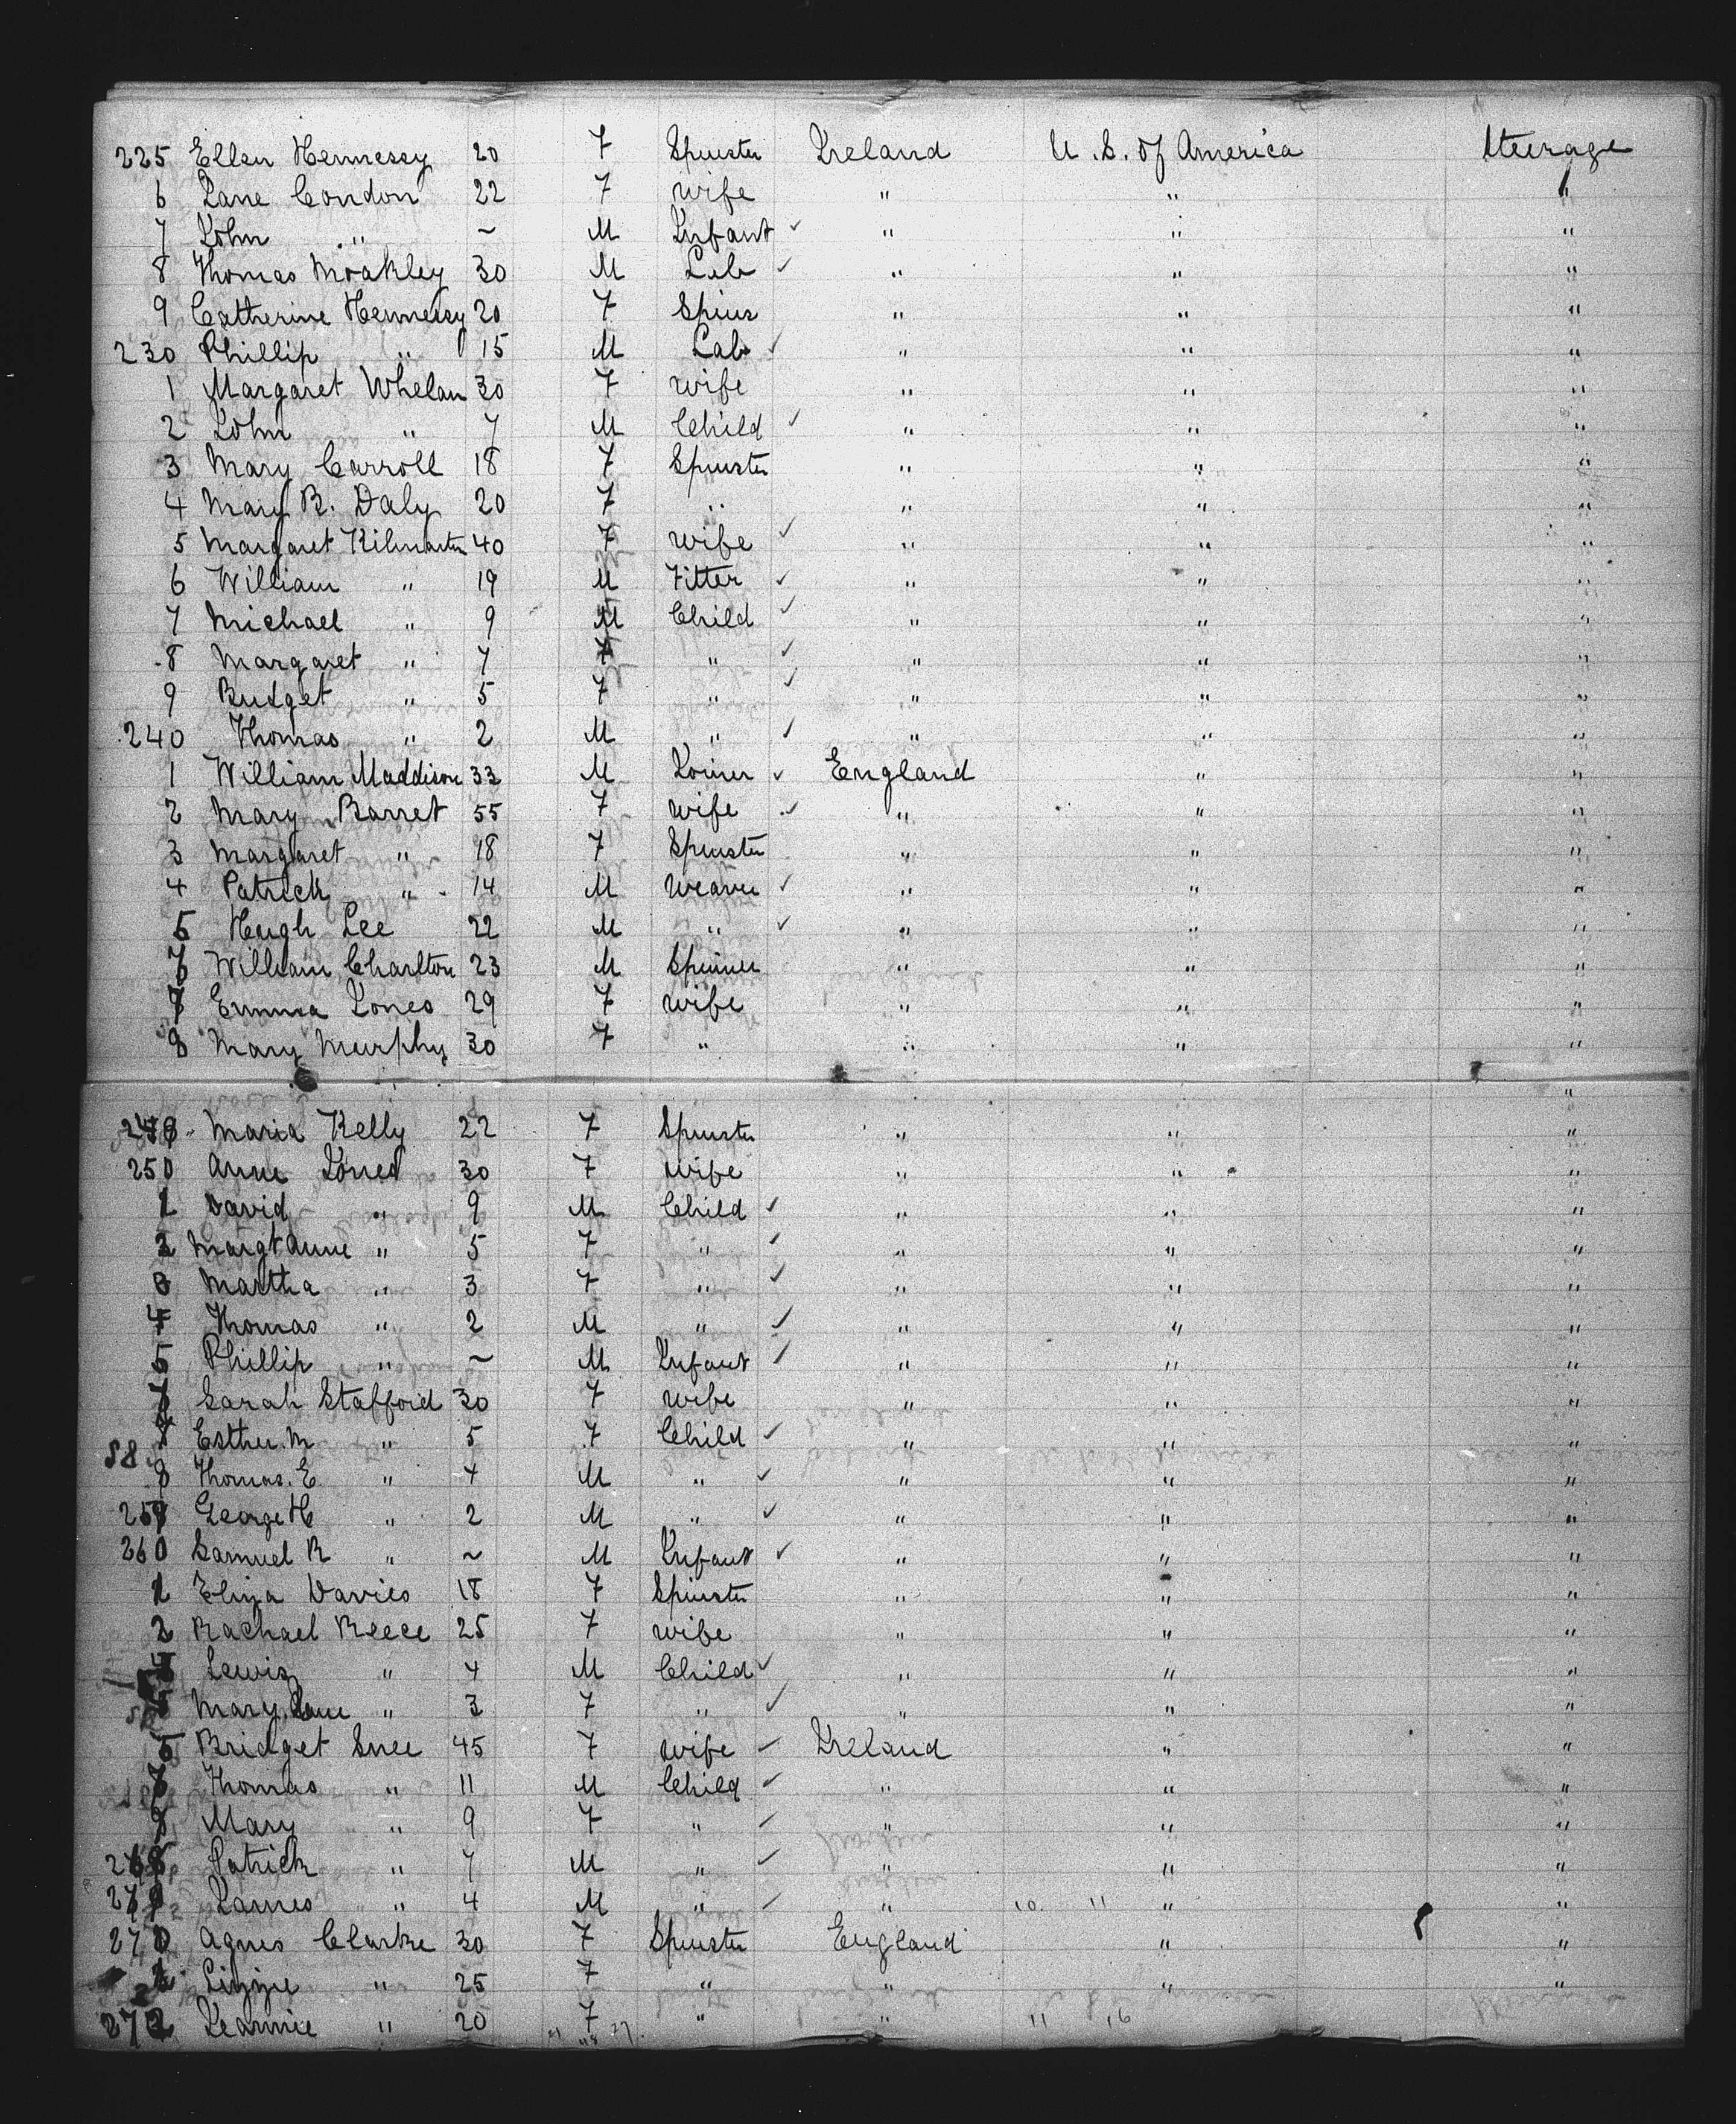 225 Ellen Hennessy 20 F Spinster Ireland U.S. of America Steerage
6 Jane Condon 22 F wife " " "
7 John " ~ M Infant ✓ " " "
8 Thomas Moakley 30 M Lab ✓ " " "
9 Catherine Hennessy 20 F Spins " " "
230 Phillip " 15 M Lab ✓ " " "
1 Margaret Whelan 30 F wife " " "
2 John " 7 M Child ✓ " " "
3 Mary Carroll 18 F Spinster " " "
4 Mary B. Daly 20 F " " " "
5 Margaret Kilmartin 40 F wife ✓ " " "
6 William " 19 M Fitter ✓ " " "
7 Michael " 9 M Child ✓ " " "
8 Margaret " 7 F " ✓ " " "
9 Bridget " 5 F " ✓ " " "
240 Thomas " 2 M " ✓ " " "
1 William Maddison 33 M Joiner ✓ England " "
2 Mary Barret 55 F wife ✓ " " "
3 Margaret " 18 F Spinster " " "
4 Patrick " 14 M Weaver ✓ " " "
5 Hugh Lee 22 M " ✓ " " "
William Charlton 23 M Spinner " " "
Emma Jones 29 F wife " " "
8 Mary Murphy 30 F " " " "
Maria Kelly 22 F Spinster " " "
250 Anne Jones 30 F wife " " "
1 David " 9 M Child ✓ " " "
2 Margt Anne " 5 F " ✓ " " "
3 Martha " 3 F " ✓ " " "
4 Thomas " 2 M " ✓ " " "
5 Phillip " ~ M Infant ✓ " " "
Sarah Stafford 30 F wife " " "
Esther M " 5 F Child ✓ " " "
8 Thomas. E " 4 M " ✓ " " "
259 George H " 2 M " ✓ " " "
260 Samuel R " ~ M Infant ✓ " " "
1 Eliza Davies 18 F Spinster " " "
2 Rachael Reece 25 F wife " " "
Lewis " 4 M Child ✓ " " "
Mary Jane " 3 F " ✓ " " "
5 Bridget Snee 45 F wife ✓ Ireland " "
Thomas " 11 M Child ✓ " " "
Mary " 9 F " ✓ " " "
268 Patrick " 7 M " ✓ " " "
James " 4 M " ✓ " 10 11 " "
270 Agnes Clarke 30 F Spinster England " "
Lizzie " 25 F " " " "
272 Jeannie " 20 F " " 11 16